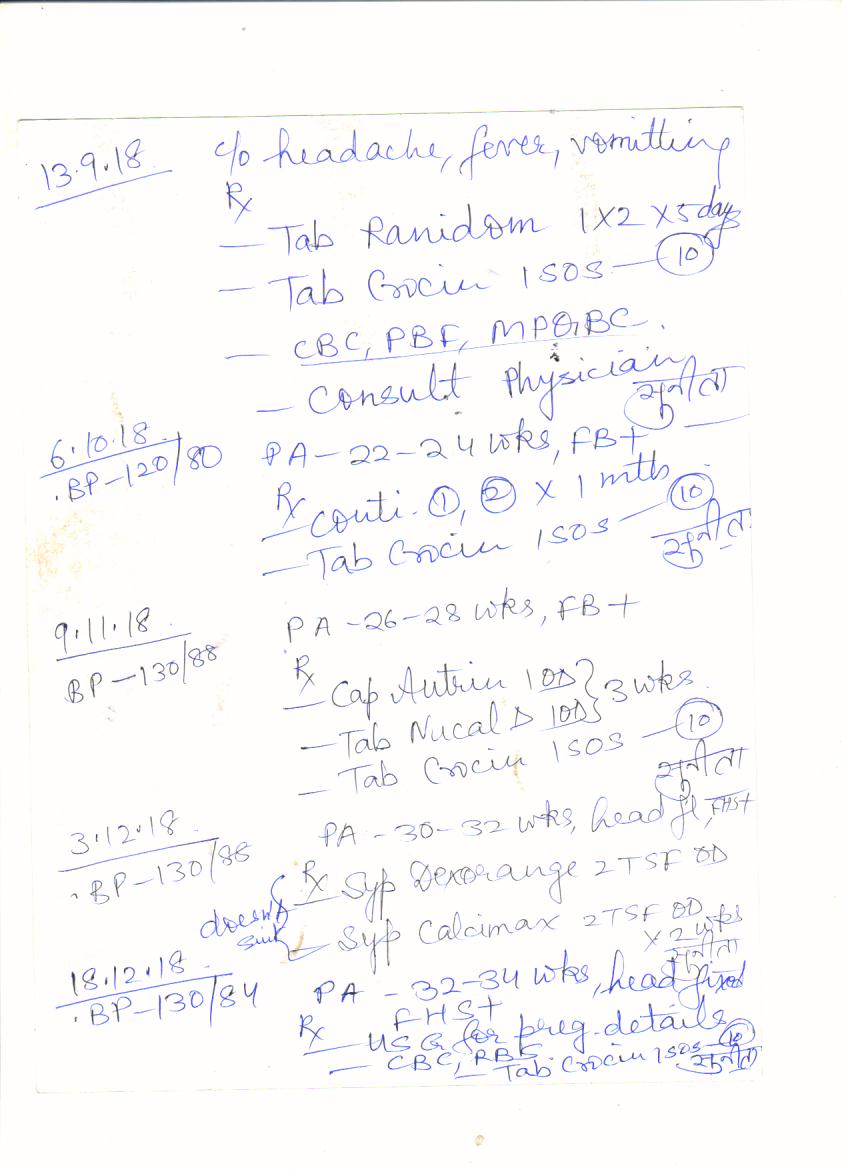 13.9.18 c/o headache, fever, vomitting
Rx
— Tab Ranidom 1 X 2 X 5 days
— Tab Crocin 1 SOS — 10
— CBC, PBF, MPQBC.
— Consult Physician
सुनीता
6.10.18 PA – 22–24 wks, FB+
.BP – 120/80
Rx conti. ①, ② X 1 mth
— Tab Crocin 1 SOS — 10
सुनीता
9.11.18 PA – 26–28 wks, FB+
BP – 130/88
Rx
— Cap Autrin 1 OD } 3 wks
— Tab Nucal D 1 OD
— Tab Crocin 1 SOS — 10
सुनीता
3.12.18 PA – 30–32 wks, head fl, FHS+
.BP – 130/88
Rx Syp Dexorange 2 TSF OD
doesn't suit
— Syp Calcimax 2 TSF OD
X 2 wks
सुनीता
18.12.18 PA – 32–34 wks, head fixed
.BP – 130/84 FHS+
Rx — USG for preg. details
— CBC, RBS
— Tab Crocin 1 SOS 10
सुनीता